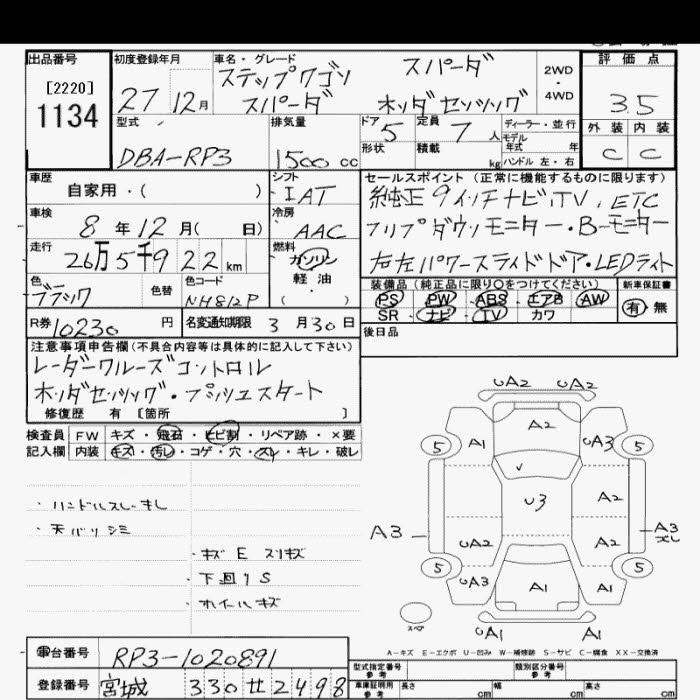 出品番号
[2220]
1134
初度登録年月
27 12月
車名・グレード
ステップワゴン スパーダ
スパーダ ホンダセンシング
2WD・4WD
評価点
3.5
外装 内装
C C
型式
DBA-RP3
排気量
1500 cc
ドア 5
形状
定員 7 人
積載 kg
ディーラー・並行
モデル年式 年
ハンドル 左・右
車歴
自家用・( )
シフト
IAT
車検
8 年 12 月( 日)
冷房
AAC
走行
26万5千922km
燃料
ガソリン
軽油
( )
色
ブラック
色替
色コード
NH812P
セールスポイント (正常に機能するものに限ります)
純正9インチナビ、TV、ETC
フリップダウンモニター・B-モニター
右左パワースライドドア・LEDライト
装備品 (純正品に限り〇をつけてください)
PS PW ABS エアB AW
SR ナビ TV カワ
新車保証書
有 無
R券 10230 円
名変通知期限 3 月 30 日
後日品
注意事項申告欄(不具合内容等は具体的に記入して下さい)
レーダークルーズコントロール
ホンダセンシング・プッシュスタート
修復歴 有 [箇所 ]
検査員 FW キズ・飛石・ヒビ割・リペア跡・×要
記入欄 内装 キズ・汚レ・コゲ・穴・スレ・キレ・破レ
・ハンドルスレ・キレ
・天バリシミ
・キズ E スリキズ
・下回りS
・ホイールキズ
UA2 UA2
A2
5 A1 UA3 5
U3 A2
A3 A3
UA2 A2
5 UA3 A1 A1 5
UA1 A1
スペア
A-キズ E-エクボ U-凹み W-補修跡 S-サビ C-腐食 XX-交換済
車台番号 RP3-1020891
登録番号 宮城 330 せ 2498
型式指定番号 参考
類別区分番号 参考
車庫証明用 参考 長さ cm 幅 cm 高さ cm